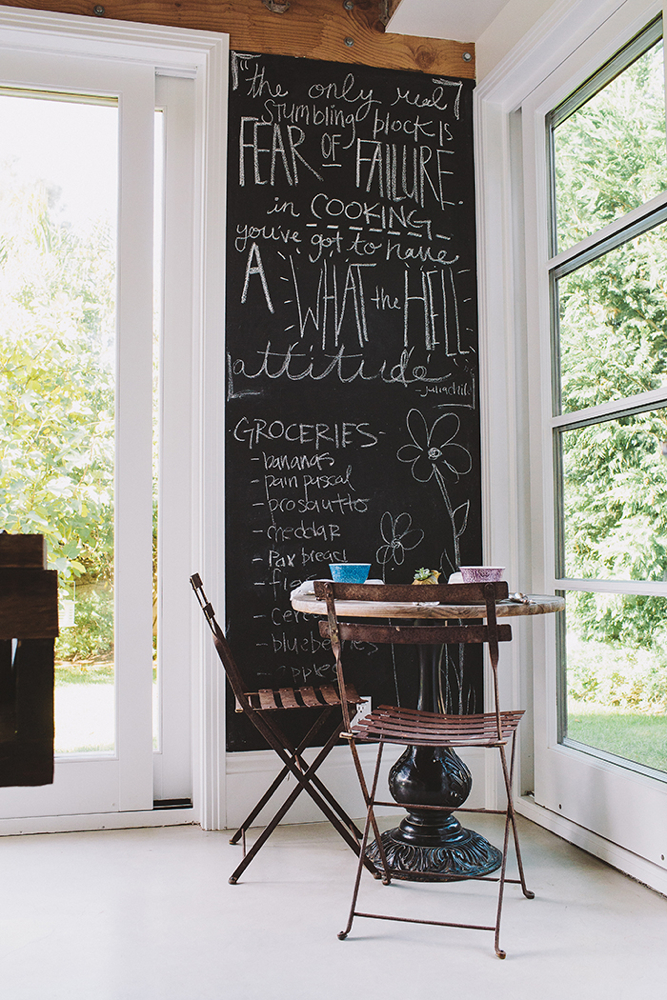 "the only real
stumbling block is
FEAR OF FAILURE.
in COOKING
you've got to have
A WHAT the HELL
attitude"
- julia child
- GROCERIES -
- bananas
- pain pascal
- prosciutto
- cheddar
- Pax bread
- figs
- cere
- blueberries
- apples